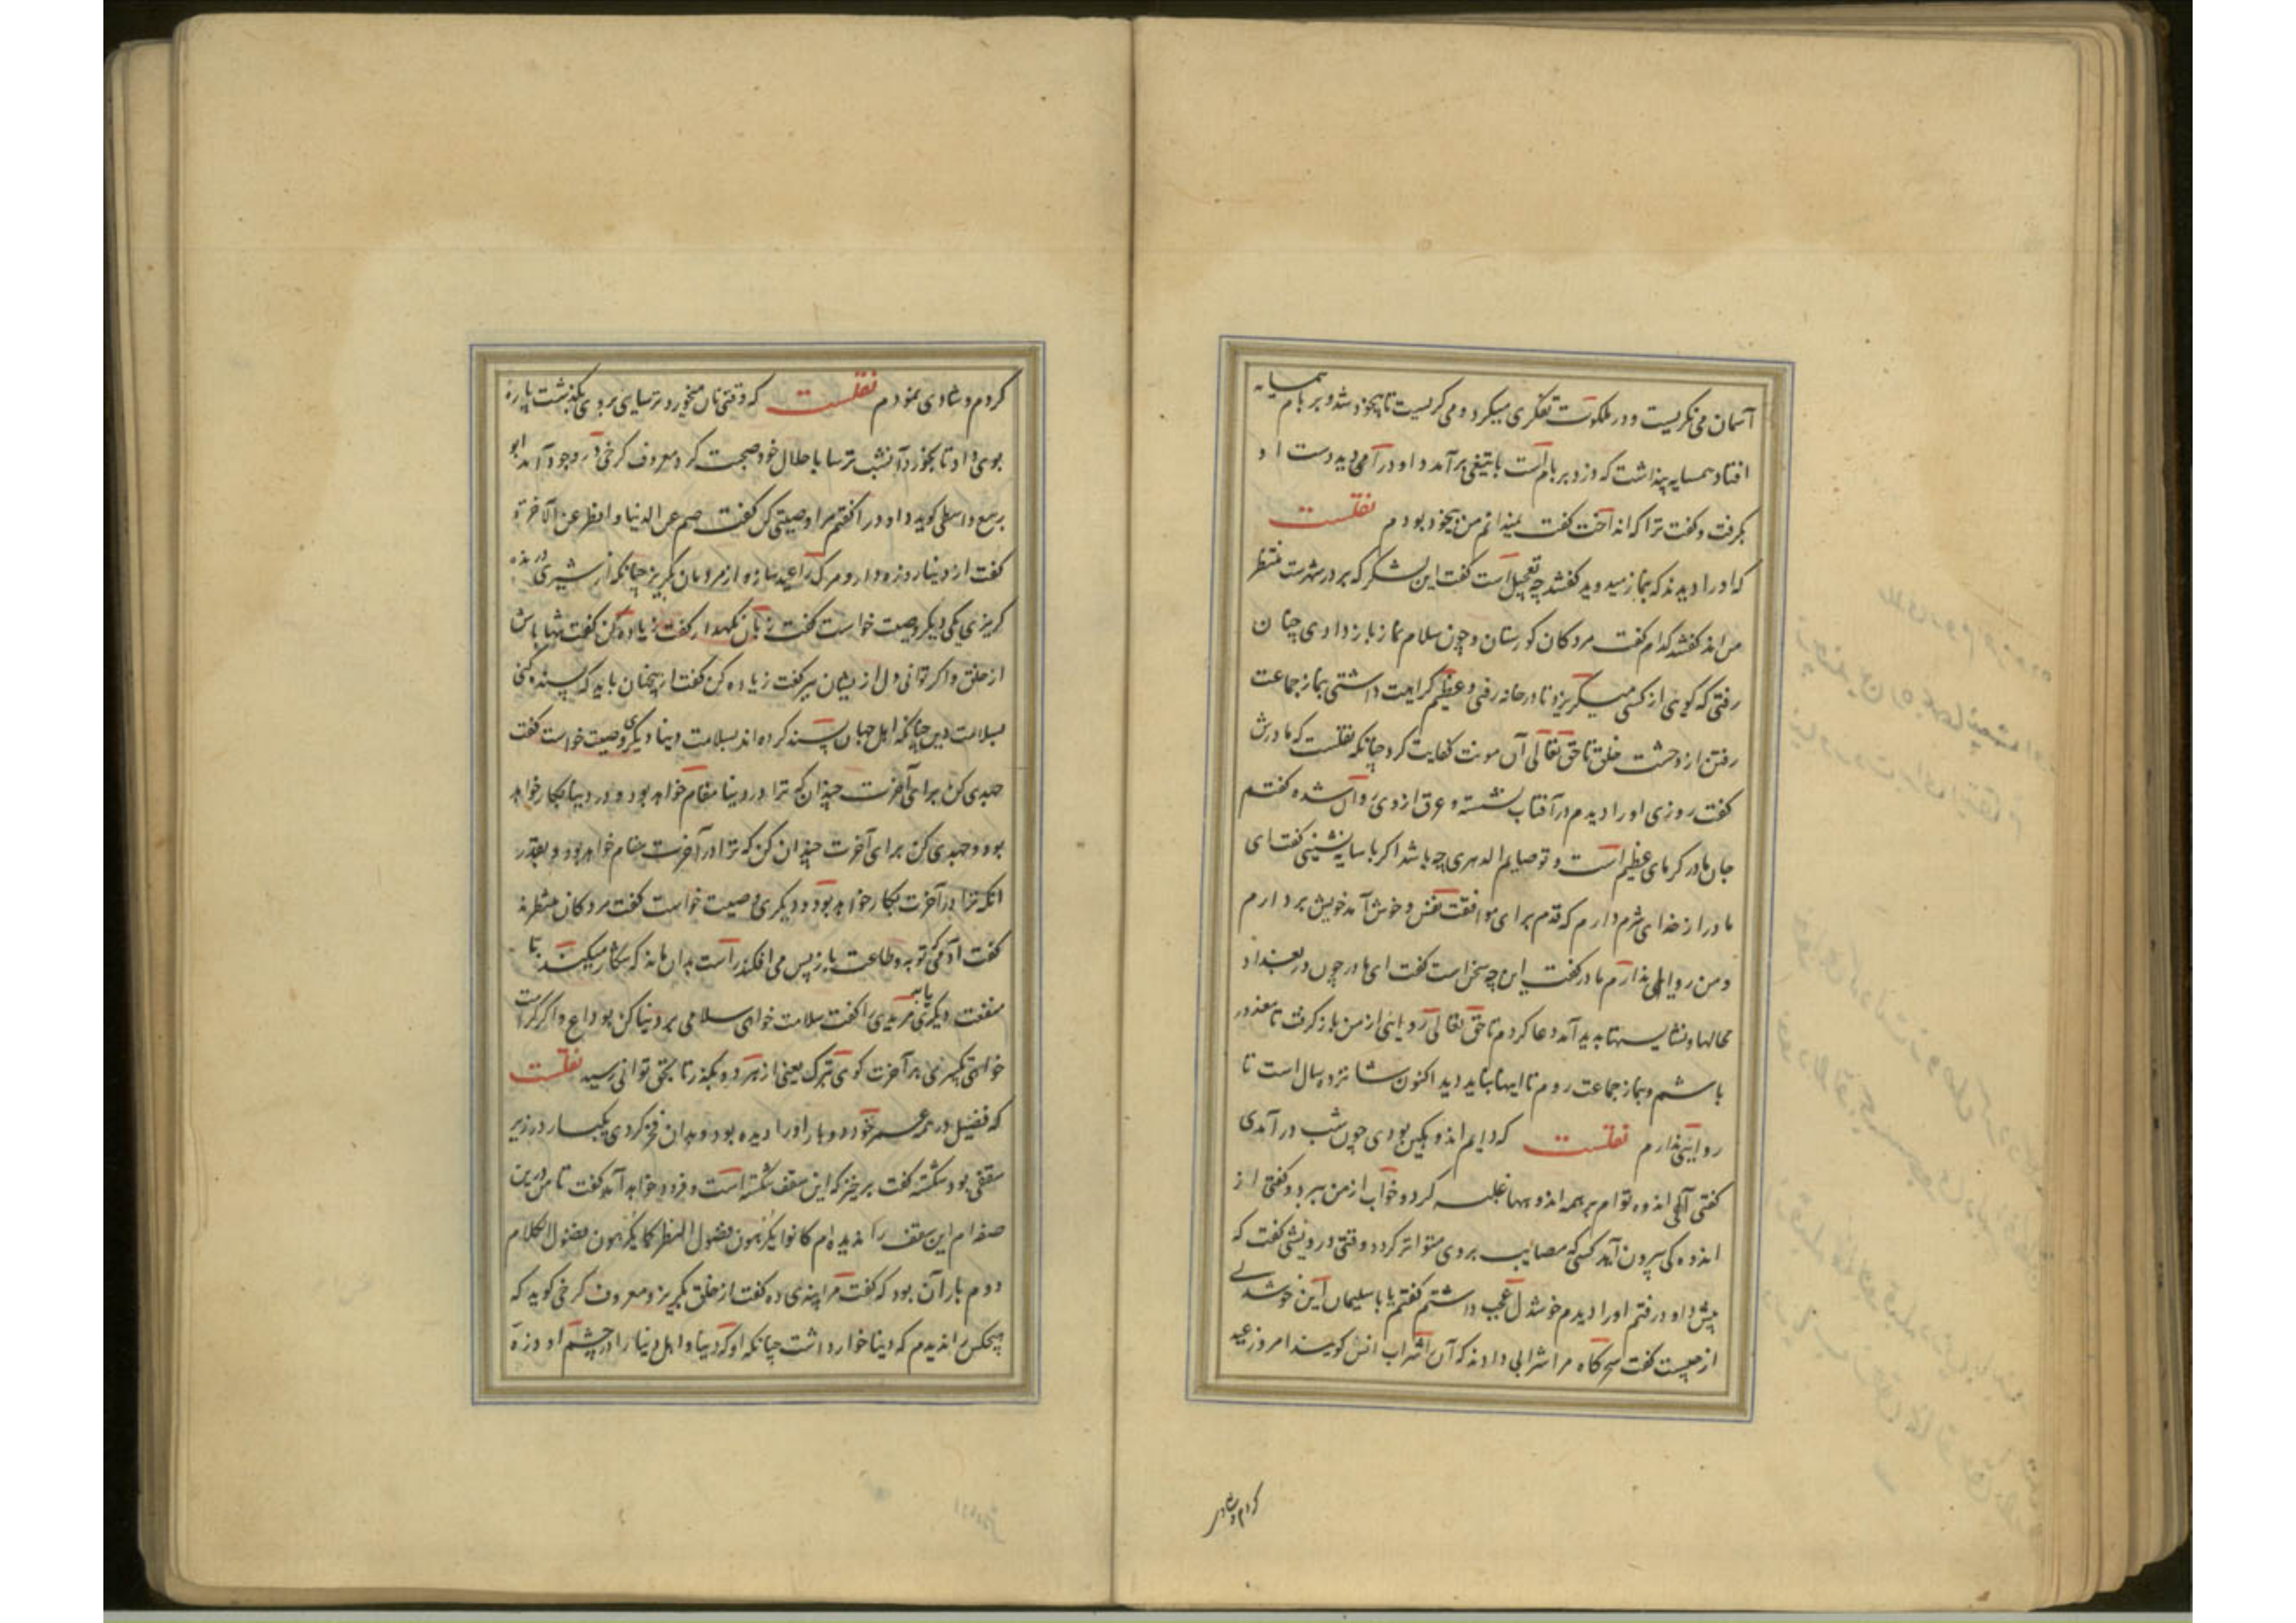 آسمان می نکریست و در ملکوت تفکری میکرد و می کریست تا بیخود شد و بر بام همسایه
افتاد همسایه پنداشت که دزد بر بام است با تیغی بر آمد داود را می دید دست او
بکرفت و کفت ترا که انداخت کفت نمیدانم من بیخود بودم نقلست
که او را دیدند که بنماز میدوید کفتند چه تعجیل است کفت این لشکر که بر در شهرست منتظر
من اند کفتند کدام کفت مردکان کورستان و چون سلام نماز باز دادی چنان
رفتی که کویی از کسی میکریزد تا در خانه رفتی و عظیم کراهیت داشتی بنماز جماعت
رفتن از وحشت خلق تا حق تعالی آن مونت کفایت کرد چنانکه نقلست که مادرش
کفت روزی او را دیدم در آفتاب نشسته و عرق از وی روان شده کفتم
جان مادر کرمای عظیم است و تو صایم الدهری چه باشد اکر با سایه نشینی کفت ای
مادر از خدای شرم دارم که قدم برای موافقت نفس و خوش آمد خویش بردارم
و من روایی ندارم مادر کفت این چه سخن است کفت ای مادر چون در بغداد
حالها و نشایستها بدید آمد دعا کردم تا حق تعالی روایی از من باز کرفت تا معذور
باشم و بنماز جماعت نروم تا اینها نباید دید اکنون شانزده سال است تا
روایی ندارم نقلست که دایم اندوهکین بودی چون شب در آمدی
کفتی الهی اندوه توام بر همه اندوهها غلبه کرد و خواب از من ببرد و کفتی از
اندوه کی بیرون آید کسی که مصایب بر وی متواتر کردد وقتی درویشی کفت که
پیش داود رفتم او را دیدم خوشدل عجب داشتم کفتم یا با سلیمان این خوشدلی
از چیست کفت سحرکاه مرا شرابی دادند که آن را شراب انس کویند امروز عید
کردم و شادی
کردم و شادی نمودم نقلست که وقتی نان میخورد ترسایی بر وی بکذشت پاره
بوی داد تا بخورد آنشب ترسا با حلال خود صحبت کرد معروف کرخی در وجود آمد ابو
ربیع واسطی کوید داود را کفتم مرا وصیتی کن کفت صم عن الدنیا و افطر عن الآخرة
کفت از دنیا روزه دار و مرک را عید ساز و از مردمان بکریز چنانکه از شیر درنده
کریزی یکی دیکر وصیت خواست کفت زبان نکهدار کفت زیاده کن کفت تنها باش
از خلق و اکر توانی دل از یشان ببر کفت زیاده کن کفت از یخنان باید که بسنده کنی
بسلامت دین چنانکه اهل جهان بسنده کرده اند بسلامت دنیا دیکری وصیت خواست کفت
جهدی کن برای آخرت چندان که ترا در دنیا مقام خواهد بود و در دنیا بکار خواهد
بود و جهدی کن برای آخرت چندان کن که ترا در آخرت مقام خواهد بود و بقدر
انکه ترا در آخرت بکار خواهد بود و دیکری وصیت خواست کفت مردکان منتظرند
کفت آدمی توبه و طاعت باز پس می افکند راست بدان ماند که شکار میکند تا
منفعت دیکری را باید مریدی را کفت سلامت خواهی سلامی بر دنیا کن بوداع و اکر کرامت
خواهی تکبیری بر آخرت کوی بترک یعنی از هر دو بکذر تا بحق توانی رسید نقلست
که فضیل در همه عمر خود دو بار او را دیده بود و بدان فخر کردی یکبار در زیر
سقفی بود شکسته کفت برخیز که این سقف شکسته است و فرود خواهد آمد کفت تا من درین
صفه ام این سقف را ندیده ام کانوا یکرهون فضول النظر کما یکرهون فضول الکلام
دوم بار آن بود که کفت مرا پندی ده کفت از خلق بکریز و معروف کرخی کوید که
هیچکس را ندیدم که دنیا خوار داشت چنانکه او که دنیا و اهل دنیا را در چشم او ذره